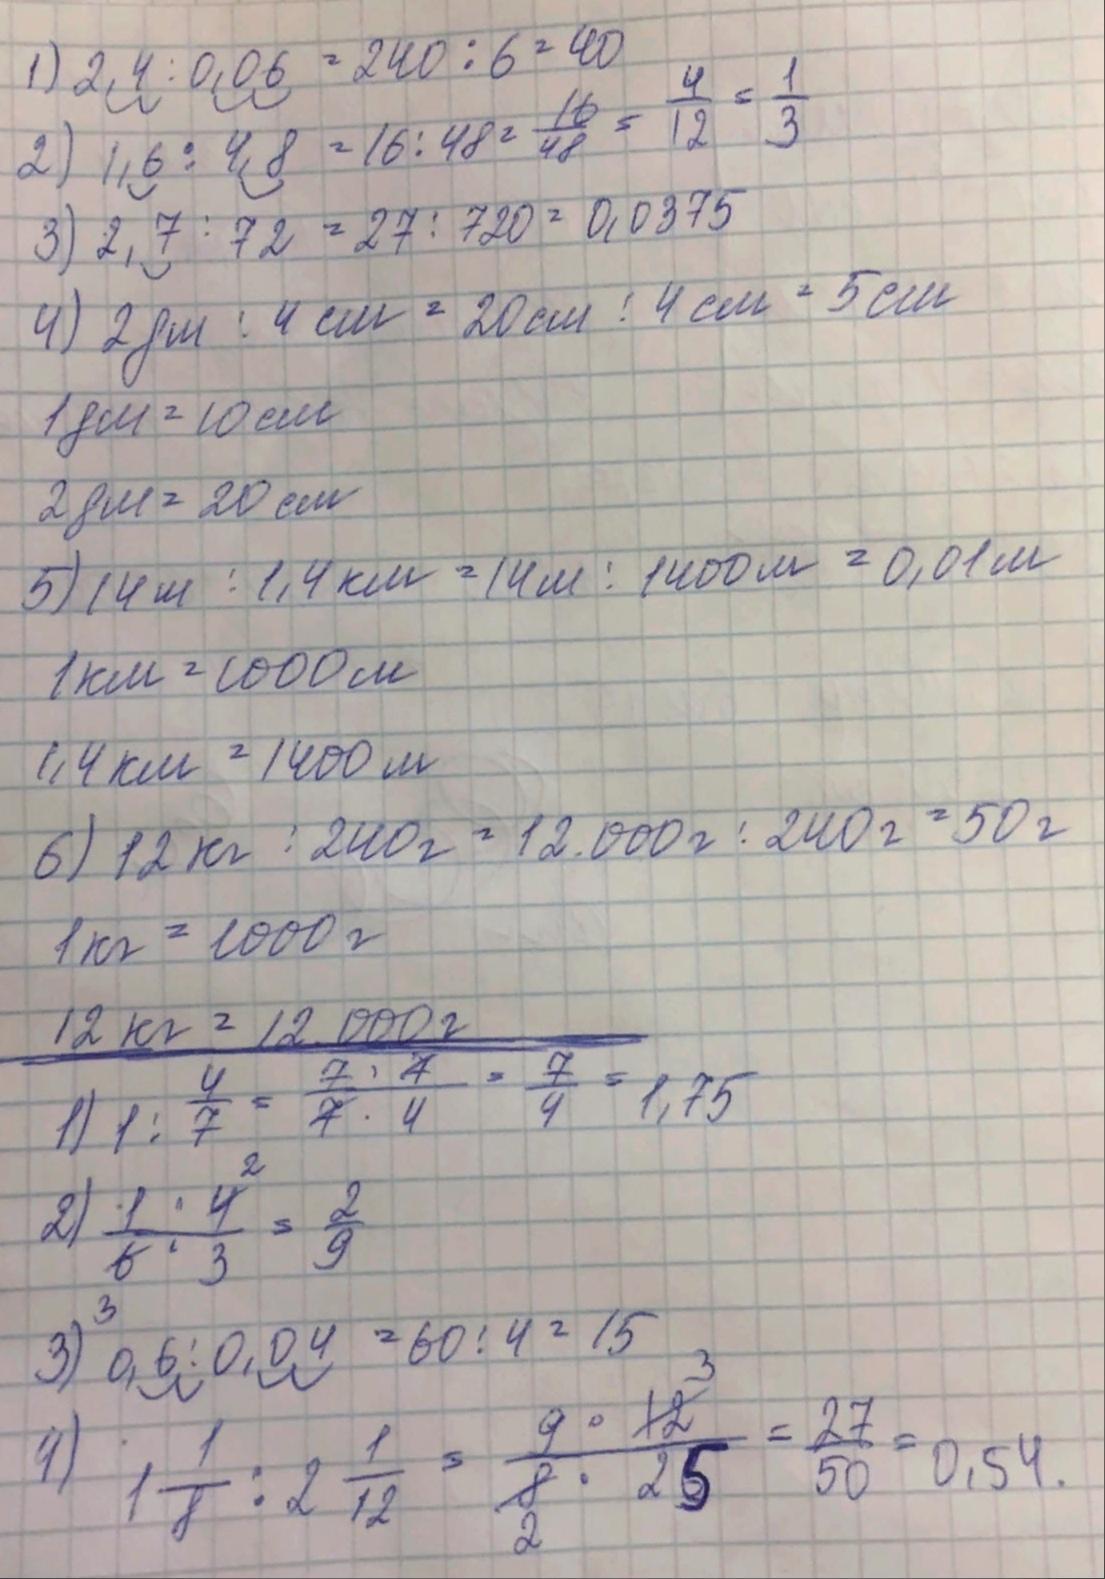 1) 2,4 : 0,06 = 240 : 6 = 40
2) 1,6 : 4,8 = 16 : 48 = 16/48 = 4/12 = 1/3
3) 2,7 : 72 = 27 : 720 = 0,0375
4) 2 дм : 4 см = 20 см : 4 см = 5 см
1 дм = 10 см
2 дм = 20 см
5) 14 м : 1,4 км = 14 м : 1400 м = 0,01 м
1 км = 1000 м
1,4 км = 1400 м
6) 12 кг : 240 г = 12.000 г : 240 г = 50 г
1 кг = 1000 г
12 кг = 12.000 г
1) 1 : 4/7 = 7 · 7 / 7 · 4 = 7/4 = 1,75
2) 1 · 4 2 / 6 · 3 = 2/9
3
3) 0,6 : 0,04 = 60 : 4 = 15
4) 1 1/8 : 2 1/12 = 9 · 12 3 / 8 · 25 = 27/50 = 0,54.
2